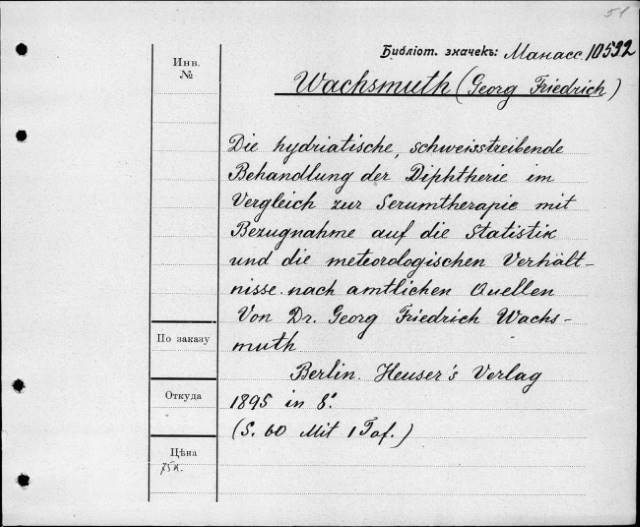 51
Библіот. значекъ: Манасс. 10592
Инв.
№
Wachsmuth (Georg Friedrich)
Die hydriatische, schweisstreibende
Behandlung der Diphtherie im
Vergleich zur Serumtherapie mit
Bezugnahme auf die Statistik
und die meteorologischen Verhält-
nisse nach amtlichen Quellen
Von Dr. Georg Friedrich Wachs-
muth
По заказу
Berlin. Heuser's Verlag
Откуда
1895 in 8º.
(S. 60 Mit 1 Taf.)
Цѣна
75к.